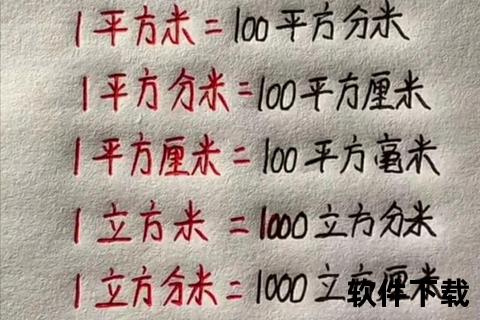 1平方米=100平方分米
1平方分米=100平方厘米
1平方厘米=100平方毫米
1立方米=1000立方分米
1立方分米=1000立方厘米
软件下载